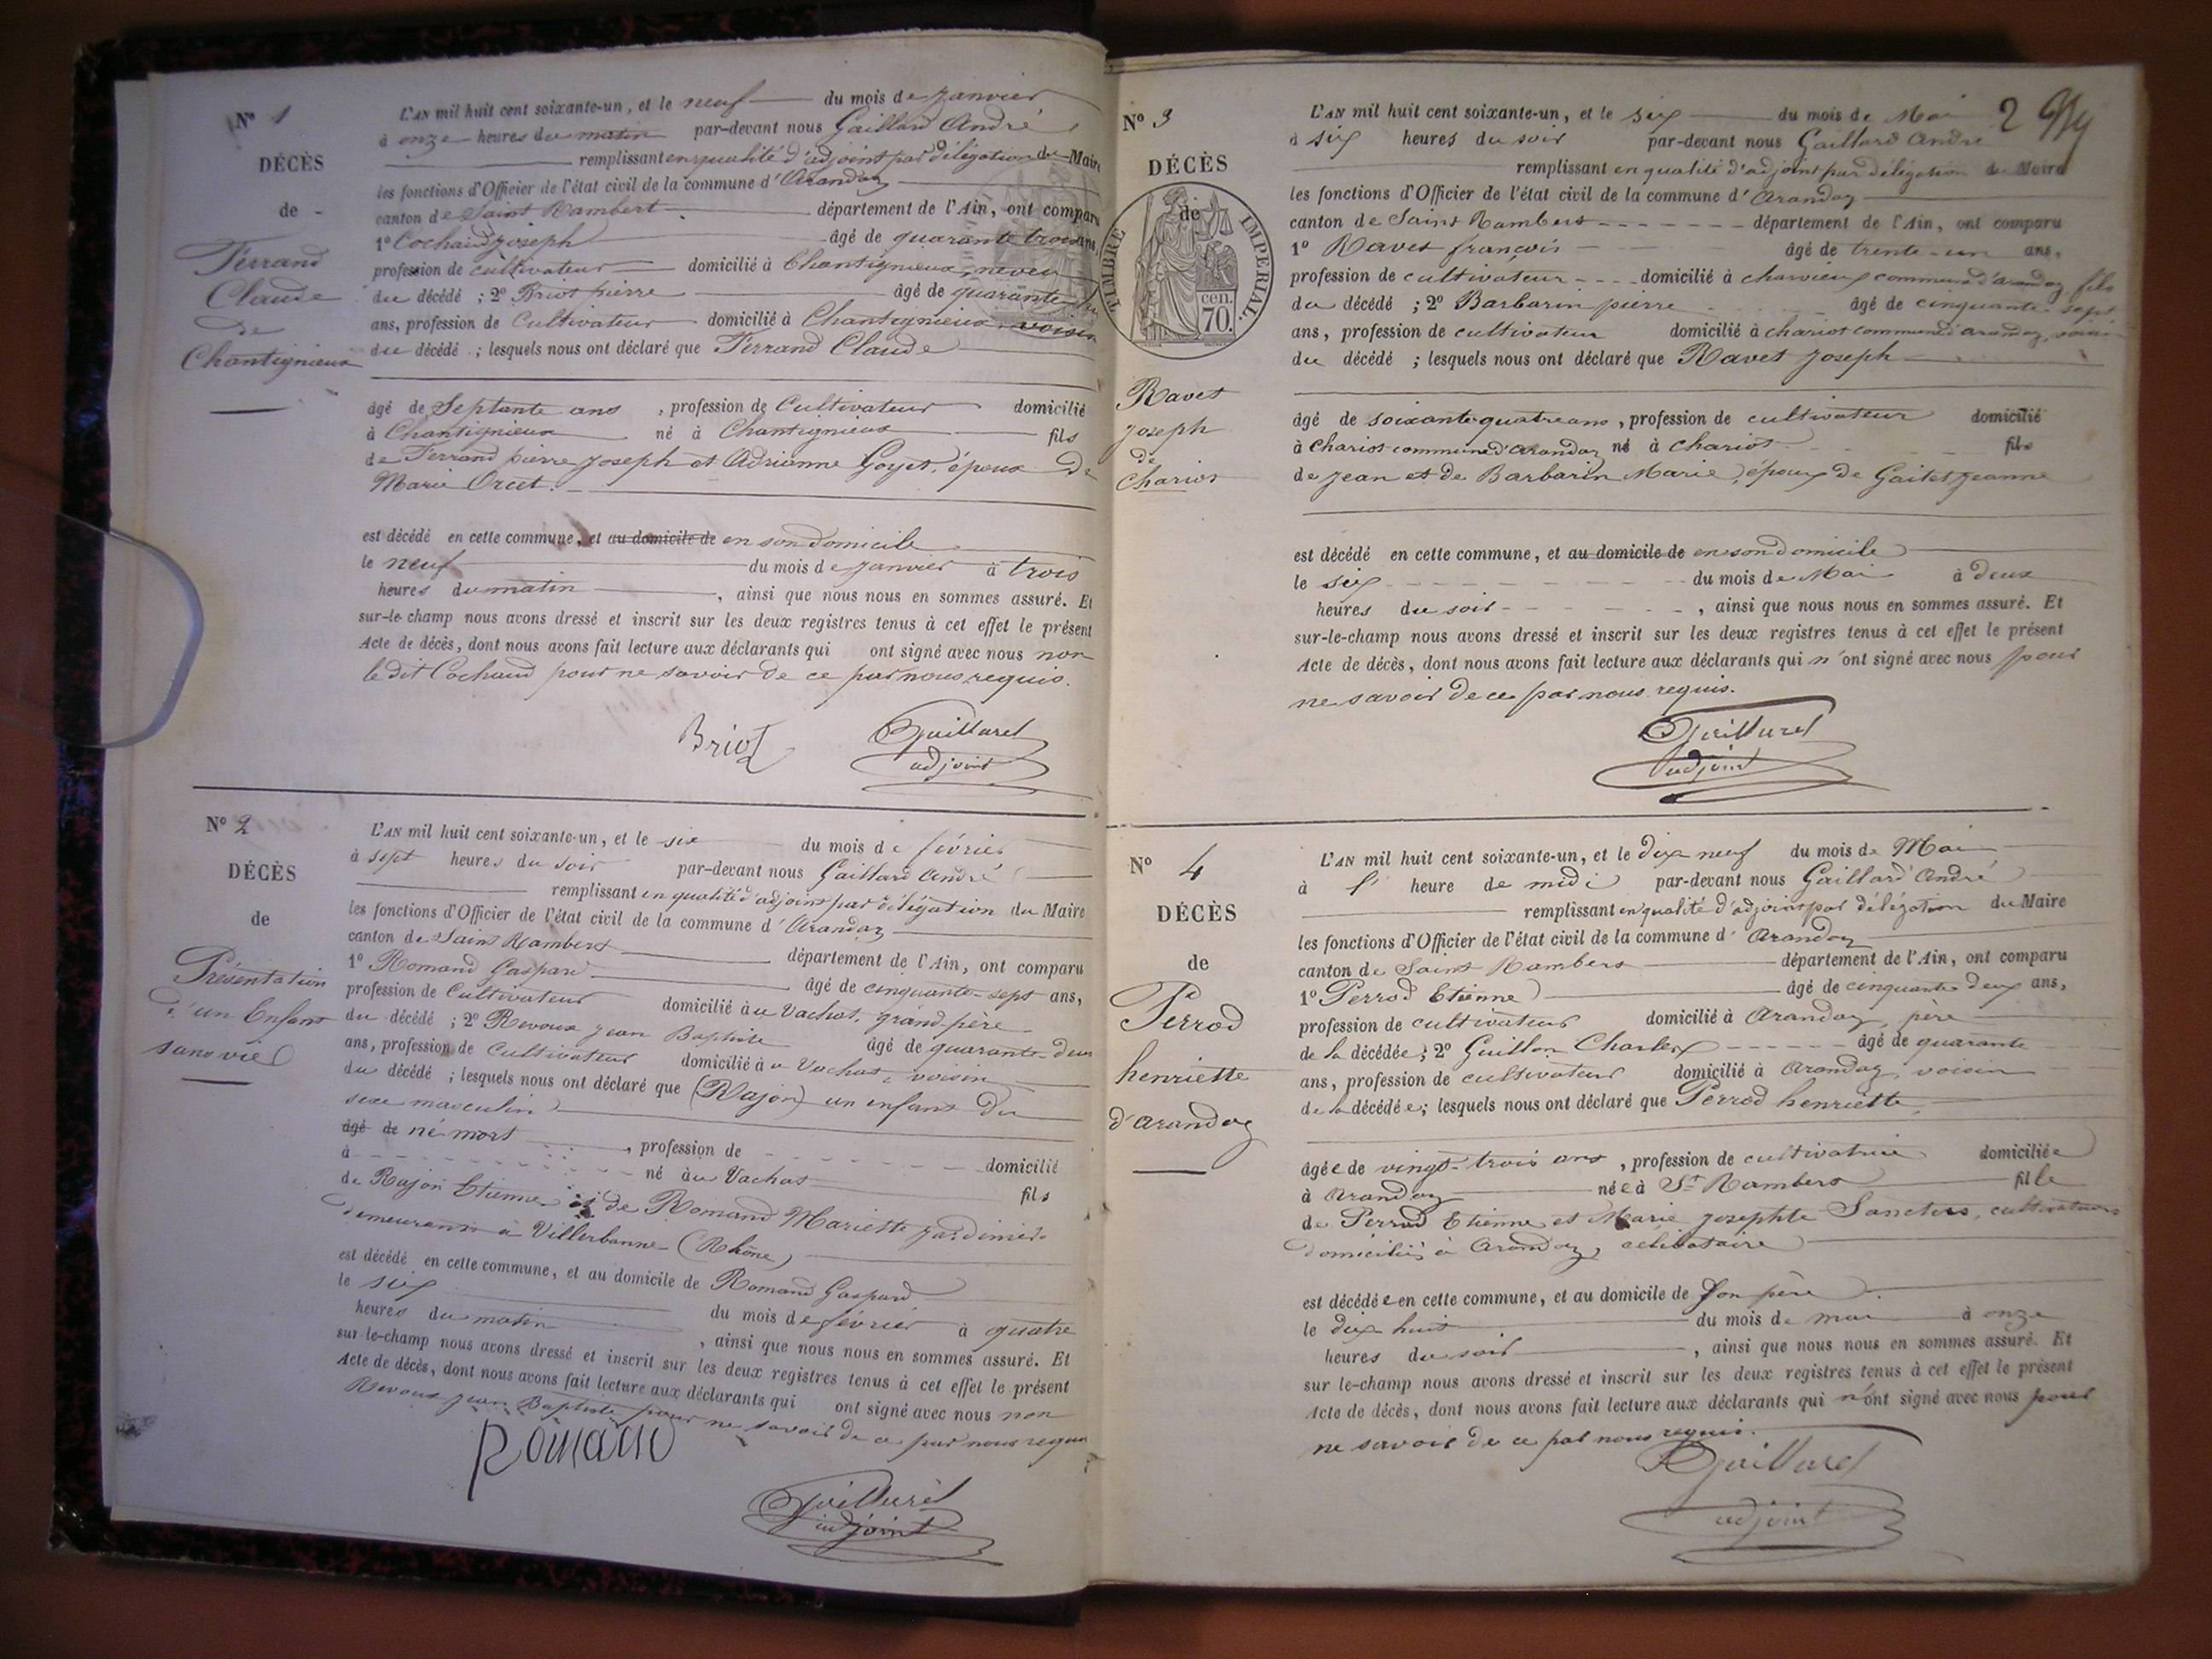 N° 1
DÉCÈS
de
Ferrand
Claude
de
Chantignieux
L'AN mil huit cent soixante-un, et le neuf du mois de janvier
à onze heures du matin par-devant nous Gaillard André
remplissant en qualité d'adjoint par délégation du Maire
les fonctions d'Officier de l'état civil de la commune d'Arandaz
canton de Saint Rambert département de l'Ain, ont comparu
1° Cochand joseph âgé de quarante trois ans,
profession de cultivateur domicilié à Chantignieux, neveu
du décédé ; 2° Briot pierre âgé de quarante
ans, profession de Cultivateur domicilié à Chantignieux, voisin
du décédé ; lesquels nous ont déclaré que Ferrand Claude
âgé de Septante ans , profession de Cultivateur domicilié
à Chantignieux né à Chantignieux fils
de Ferrand pierre joseph et Adrianne Goyet, époux de
Marie Orcet.
est décédé en cette commune, et au domicile de en son domicile
le neuf du mois de janvier à trois
heures du matin , ainsi que nous nous en sommes assuré. Et
sur-le-champ nous avons dressé et inscrit sur les deux registres tenus à cet effet le présent
Acte de décès, dont nous avons fait lecture aux déclarants qui ont signé avec nous non
le dit Cochand pour ne savoir de ce par nous requis.
Briot Gaillard
adjoint
N° 2
DÉCÈS
de
Présentation
d'un Enfant
sans vie
L'AN mil huit cent soixante-un, et le six du mois de février
à sept heures du soir par-devant nous Gaillard André
remplissant en qualité d'adjoint par délégation du Maire
les fonctions d'Officier de l'état civil de la commune d'Arandaz
canton de Saint Rambert département de l'Ain, ont comparu
1° Romand Gaspard âgé de cinquante-sept ans,
profession de Cultivateur domicilié au Vachat, grand-père
du décédé ; 2° Revoux jean Baptiste âgé de quarante-deux
ans, profession de Cultivateur domicilié au Vachat, voisin
du décédé ; lesquels nous ont déclaré que (Rajon) un enfant du
sexe masculin
âgé de né mort , profession de
à né au Vachat domicilié
de Rajon Etienne et de Romand Mariette jardiniers fils
demeurants à Villerbanne (Rhône)
est décédé en cette commune, et au domicile de Romand Gaspard
le six du mois de février à quatre
heures du matin , ainsi que nous nous en sommes assuré. Et
sur-le-champ nous avons dressé et inscrit sur les deux registres tenus à cet effet le présent
Acte de décès, dont nous avons fait lecture aux déclarants qui ont signé avec nous non
Revoux jean Baptiste pour ne savoir de ce par nous requis
Romand
Gaillard
adjoint
2
N° 3
DÉCÈS
de
TIMBRE IMPERIAL.
cen.
70.
Ravet
joseph
de
Chariot
L'AN mil huit cent soixante-un, et le six du mois de Mai
à six heures du soir par-devant nous Gaillard André
remplissant en qualité d'adjoint par délégation du Maire
les fonctions d'Officier de l'état civil de la commune d'Arandaz
canton de Saint Rambert département de l'Ain, ont comparu
1° Ravet françois âgé de trente-un ans,
profession de cultivateur domicilié à charvieux commune d'arandaz fils
du décédé ; 2° Barbarin pierre âgé de cinquante-sept
ans, profession de cultivateur domicilié à chariot commune d'arandaz, voisin
du décédé ; lesquels nous ont déclaré que Ravet joseph
âgé de soixante quatre ans, profession de cultivateur domicilié
à Chariot commune d'arandaz né à chariot fils
de jean et de Barbarin Marie, époux de Gaitet jeanne
est décédé en cette commune, et au domicile de en son domicile
le six du mois de Mai à deux
heures du soir , ainsi que nous nous en sommes assuré. Et
sur-le-champ nous avons dressé et inscrit sur les deux registres tenus à cet effet le présent
Acte de décès, dont nous avons fait lecture aux déclarants qui n'ont signé avec nous pour
ne savoir de ce par nous requis.
Gaillard
adjoint
N° 4
DÉCÈS
de
Perrod
henriette
d'arandaz
L'AN mil huit cent soixante-un, et le dix neuf du mois de Mai
à l' heure de midi par-devant nous Gaillard André
remplissant en qualité d'adjoint par délégation du Maire
les fonctions d'Officier de l'état civil de la commune d'Arandaz
canton de Saint Rambert département de l'Ain, ont comparu
1° Perrod Etienne âgé de cinquante deux ans,
profession de cultivateur domicilié à Arandaz, père
de la décédée ; 2° Guillon Charles âgé de quarante
ans, profession de cultivateur domicilié à Arandaz, voisin
de la décédée ; lesquels nous ont déclaré que Perrod henriette,
âgée de vingt-trois ans , profession de cultivatrice domiciliée
à Arandaz née à St Rambert fille
de Perrod Etienne et Marie josephte cultivateurs
domiciliés à Arandaz, célibataire
est décédée en cette commune, et au domicile de son père
le dix huit du mois de mai à onze
heures du soir , ainsi que nous nous en sommes assuré. Et
sur le-champ nous avons dressé et inscrit sur les deux registres tenus à cet effet le présent
Acte de décès, dont nous avons fait lecture aux déclarants qui n'ont signé avec nous pour
ne savoir de ce par nous requis.
Gaillard
adjoint